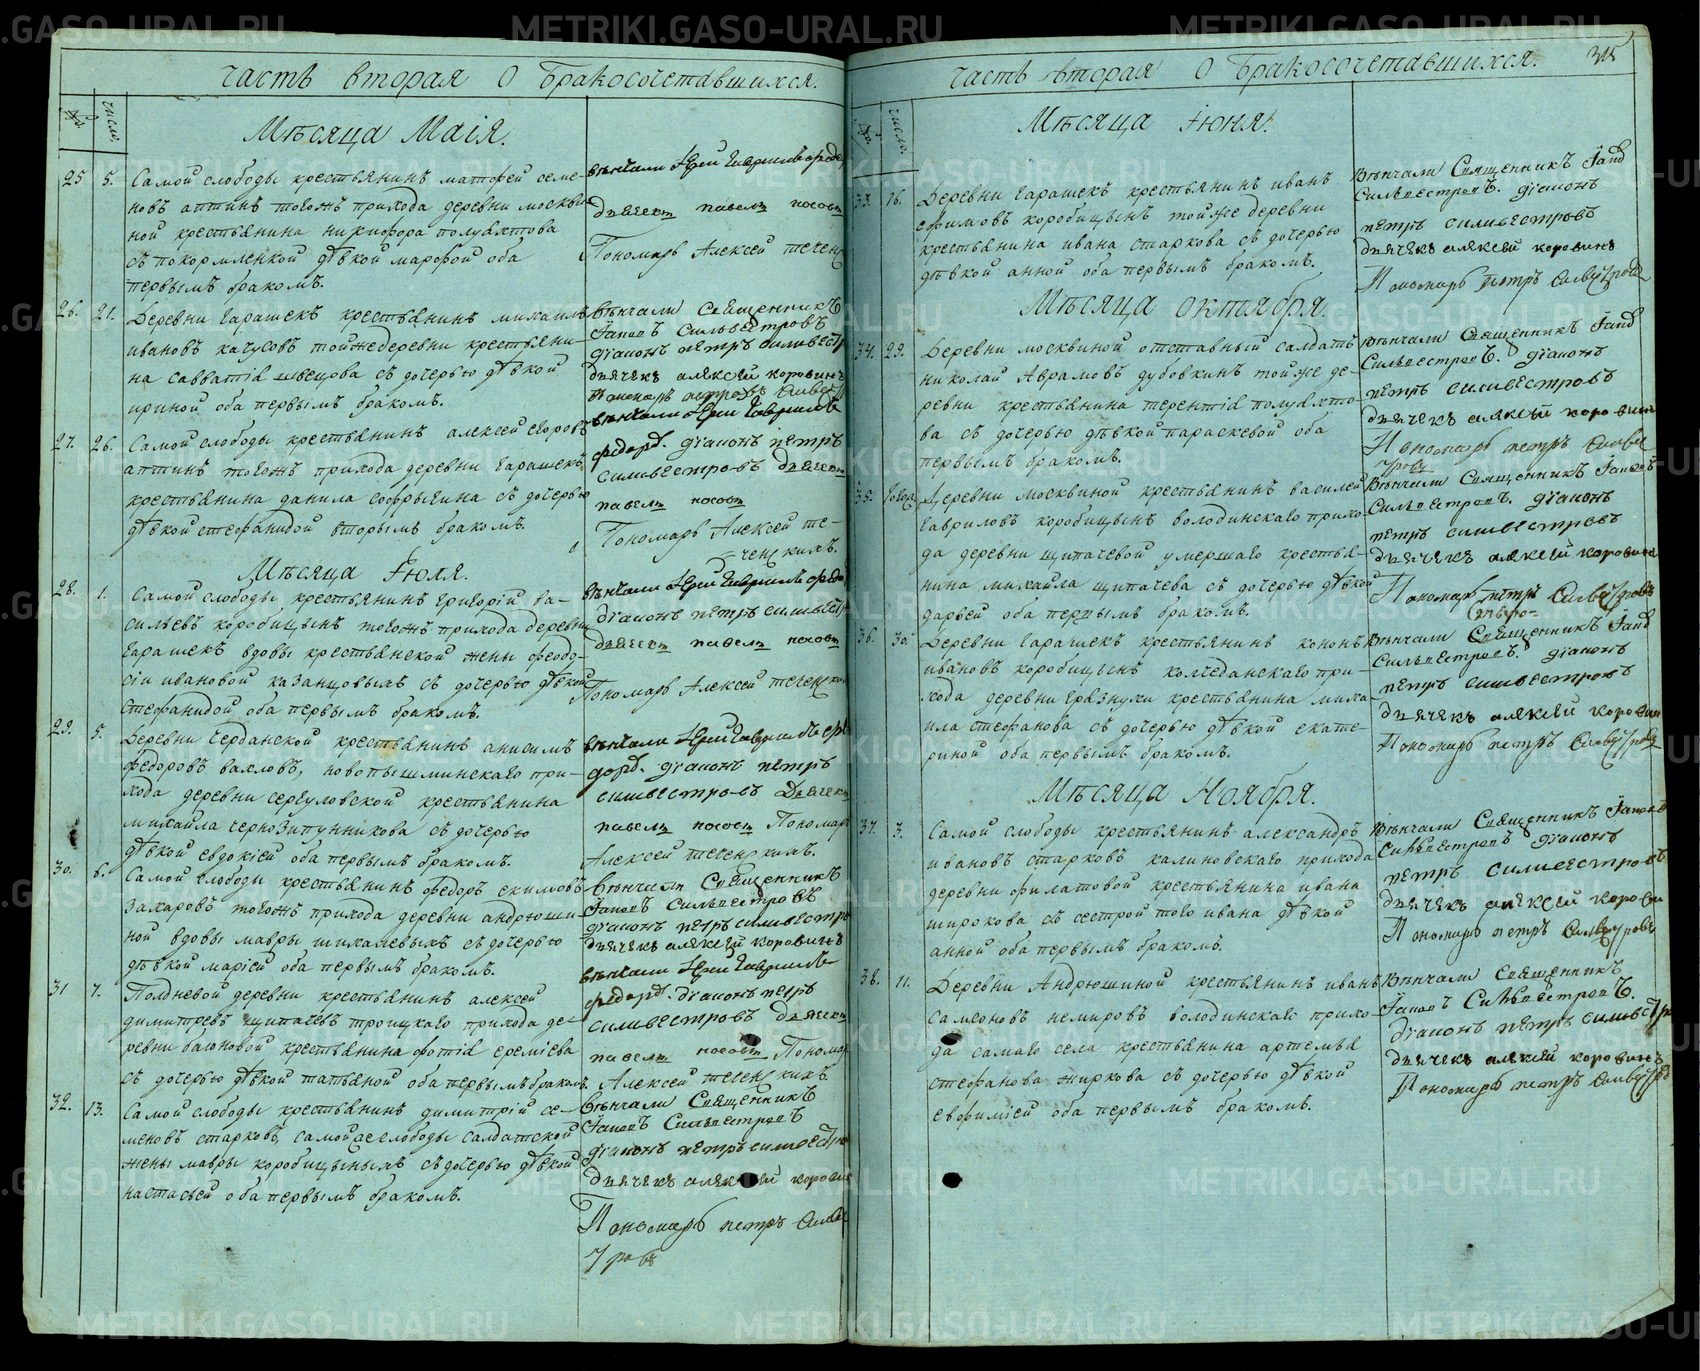 часть вторая о бракосочетавшихся.
№
число.
Мѣсяца Маія.
25
5.
Самой слободы крестьянинъ матфей семе-
новъ аптинъ тогожъ прихода деревни москви
ной крестьянина никифора полуахтова
съ покормленкой дѣвкой марфой оба
первымъ бракомъ.
вѣнчали Іерей Гавриилъ
дьячекъ павелъ носовъ
Пономарь Алексей
26.
21.
Деревни Гарашекъ крестьянинъ михаилъ
ивановъ качусовъ тойжедеревни крестьяни-
на савватіа швецова съ дочерью дѣвкой
ириной оба первымъ бракомъ.
вѣнчали священникъ
Іаковъ сильвестровъ
діаконъ петръ сильвестр
дьячекъ алексей коровинъ
пономарь петръ
27.
26.
Самой слободы крестьянинъ алексей егоровъ
аптинъ тогожъ прихода деревни Гарашекъ
крестьянина данила софрыгина съ дочерью
дѣвкой стефанидой вторымъ бракомъ.
вѣнчали Іерей Гавриилъ
діаконъ петръ
сильвестровъ дьячекъ
павелъ носовъ
Пономарь Алексей те-
ченскихъ.
Мѣсяца Іюля.
28.
1.
Самой слободы крестьянинъ григорій ва-
сильевъ коробицынъ тогожъ прихода деревни
Гарашекъ вдовы крестьянской жены феодо-
сіи ивановой казанцовыхъ съ дочерью дѣвкой
стефанидой оба первымъ бракомъ.
вѣнчали Іерей Гавриилъ
діаконъ петръ сильвестр
дьячекъ павелъ носовъ
Пономарь Алексей
29.
5.
Деревни Черданской крестьянинъ анисимъ
федоровъ вахловъ, новопышминскаго при-
хода деревни сергуловской крестьянина
михайла чернозипунникова съ дочерью
дѣвкой евдокіей оба первымъ бракомъ.
вѣнчали Іерей Гавриилъ
діаконъ петръ
сильвестровъ Дьячекъ
павелъ носовъ Пономарь
Алексей теченскихъ.
30.
6.
Самой слободы крестьянинъ федоръ екимовъ
захаровъ тогожъ прихода деревни андрюши
ной вдовы мавры шихалевыхъ съ дочерью
дѣвкой маріей оба первымъ бракомъ.
Вѣнчали Священникъ
Іаковъ Сильвестровъ
діаконъ петръ сильвестр
дьячекъ алексей коровинъ
31
7.
Полдневой деревни крестьянинъ алексей
димитревъ щипачевъ троицкаго прихода де-
ревни баговой крестьянина фотіа еремѣева
съ дочерью дѣвкой татьяной оба первымъ бракомъ.
вѣнчали Іерей Гавриилъ
діаконъ петръ
сильвестровъ дьячекъ
павелъ носовъ Пономар
Алексей теченскихъ
32.
13.
Самой слободы крестьянинъ димитрій се-
меновъ старковъ, самойже слободы салдатской
жены мавры коробицыныхъ съ дочерью дѣвкой
настасьей оба первымъ бракомъ.
Вѣнчали Священникъ
Іаковъ Сильвестровъ
діаконъ петръ сильвестро
дьячекъ алексей коровин
Пономарь петръ Сильве
стровъ
часть вторая о бракосочетавшихся.
315
№
число.
Мѣсяца Іюня.
33.
16.
Деревни Гарашекъ крестьянинъ иванъ
ефимовъ коробицынъ тойже деревни
крестьянина ивана старкова съ дочерью
дѣвкой анной оба первымъ бракомъ.
Вѣнчали Священникъ Іаковъ
Сильвестровъ. діаконъ
петръ сильвестровъ
дьячекъ алексей коровинъ
Пономарь Петръ Сильвестровъ
Мѣсяца октября.
34.
29.
Деревни москвиной отставный салдатъ
николай Аврамовъ дубовкинъ тойже де-
ревни крестьянина терентіа полуахто-
ва съ дочерью дѣвкой параскевой оба
первымъ бракомъ.
Вѣнчали Священникъ Іаковъ
Сильвестровъ. діаконъ
петръ сильвестровъ
дьячекъ алексей коровинъ
Пономарь петръ Сильве
стровъ
35.
Деревни москвиной крестьянинъ василей
гавриловъ коробицынъ володинскаго прихо-
да деревни щипачевой умершаго крестья-
нина михайла щипачева съ дочерью дѣвкой
дарьей оба первымъ бракомъ.
Вѣнчали Священникъ Іаковъ
Сильвестровъ. діаконъ
петръ сильвестровъ
дьячекъ алексей коровинъ
Пономарь петръ Сильвестровъ
36.
30.
Деревни Гарашекъ крестьянинъ кононъ
ивановъ коробицынъ колчеданскаго при-
хода деревни грязнухи крестьянина миха
ила стефанова съ дочерью дѣвкой екате-
риной оба первымъ бракомъ.
Вѣнчали Священникъ Іаковъ
Сильвестровъ. діаконъ
петръ сильвестровъ
дьячекъ алексей коровин
Пономарь петръ Сильвестровъ
Мѣсяца Ноября.
37.
3.
Самой слободы крестьянинъ александръ
ивановъ старковъ калиновскаго прихода
деревни филатовой крестьянина ивана
широкова съ сестрой того ивана дѣвкой
анной оба первымъ бракомъ.
Вѣнчали Священникъ Іаковъ
Сильвестровъ діаконъ
петръ сильвестровъ
дьячекъ алексей коровин
Пономарь петръ Сильвестровъ
38.
11.
Деревни Андрюшиной крестьянинъ иванъ
самсоновъ немировъ володинскаго прихо-
да самаго села крестьянина артемья
стефанова жиркова съ дочерью дѣвкой
евфиміей оба первымъ бракомъ.
Вѣнчали Священникъ
Іаковъ Сильвестровъ.
діаконъ петръ сильвестр
дьячекъ алексей коровинъ
Пономарь петръ Сильвестровъ
METRIKI.GASO-URAL.RU